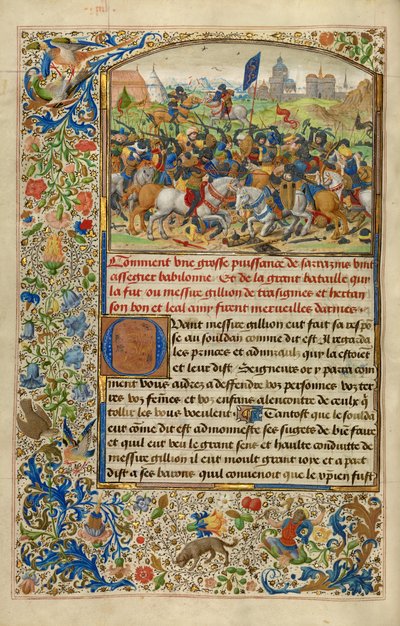 Comment vne grosse puissance de sarazins vint
assegier babilonne Et de la grant bataille qui
la fut ou messire gillion de trasignies et hertan
son bon et leal amy firent merueilles darmes
Quant messire gillion eut fait sa respo
se au souldan comme dit est Il regarda
les princes et admiraulx qui la estoiet
et leur dist Seigneurs or y parra com
ment vous aiderez a deffendre voz personnes voz ter
res voz femes et voz enfans alencontre de ceulx qui
tollir les vous veulent Tantost que le soulda
eut come dit est admonneste ses sugets de bie faire
et quil eut veu le grant sens et haulte conduitte de
messire gillion il eut moult grant ioye et a part
dist a ses barons quil conuenoit que le xpien fust